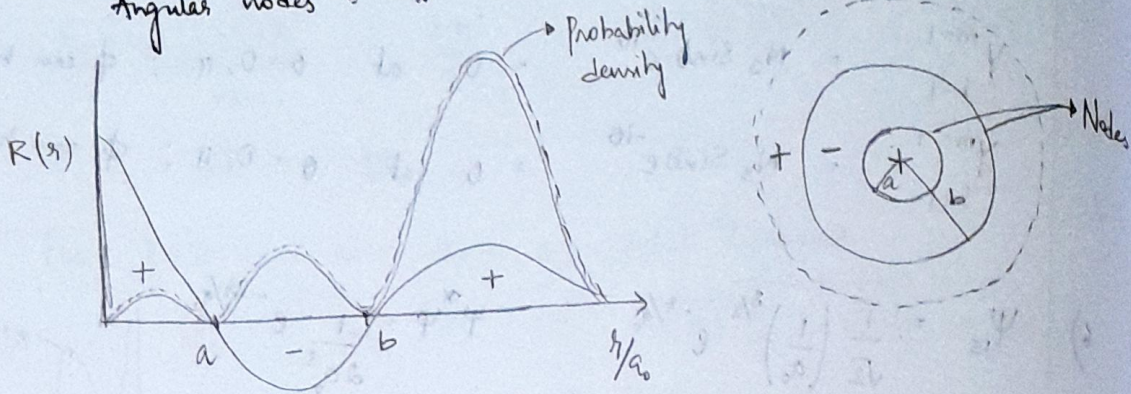 Angular nodes :
Probability
density
R(r)
+
-
+
a
b
r/a₀
+
-
+
a
b
Nodes